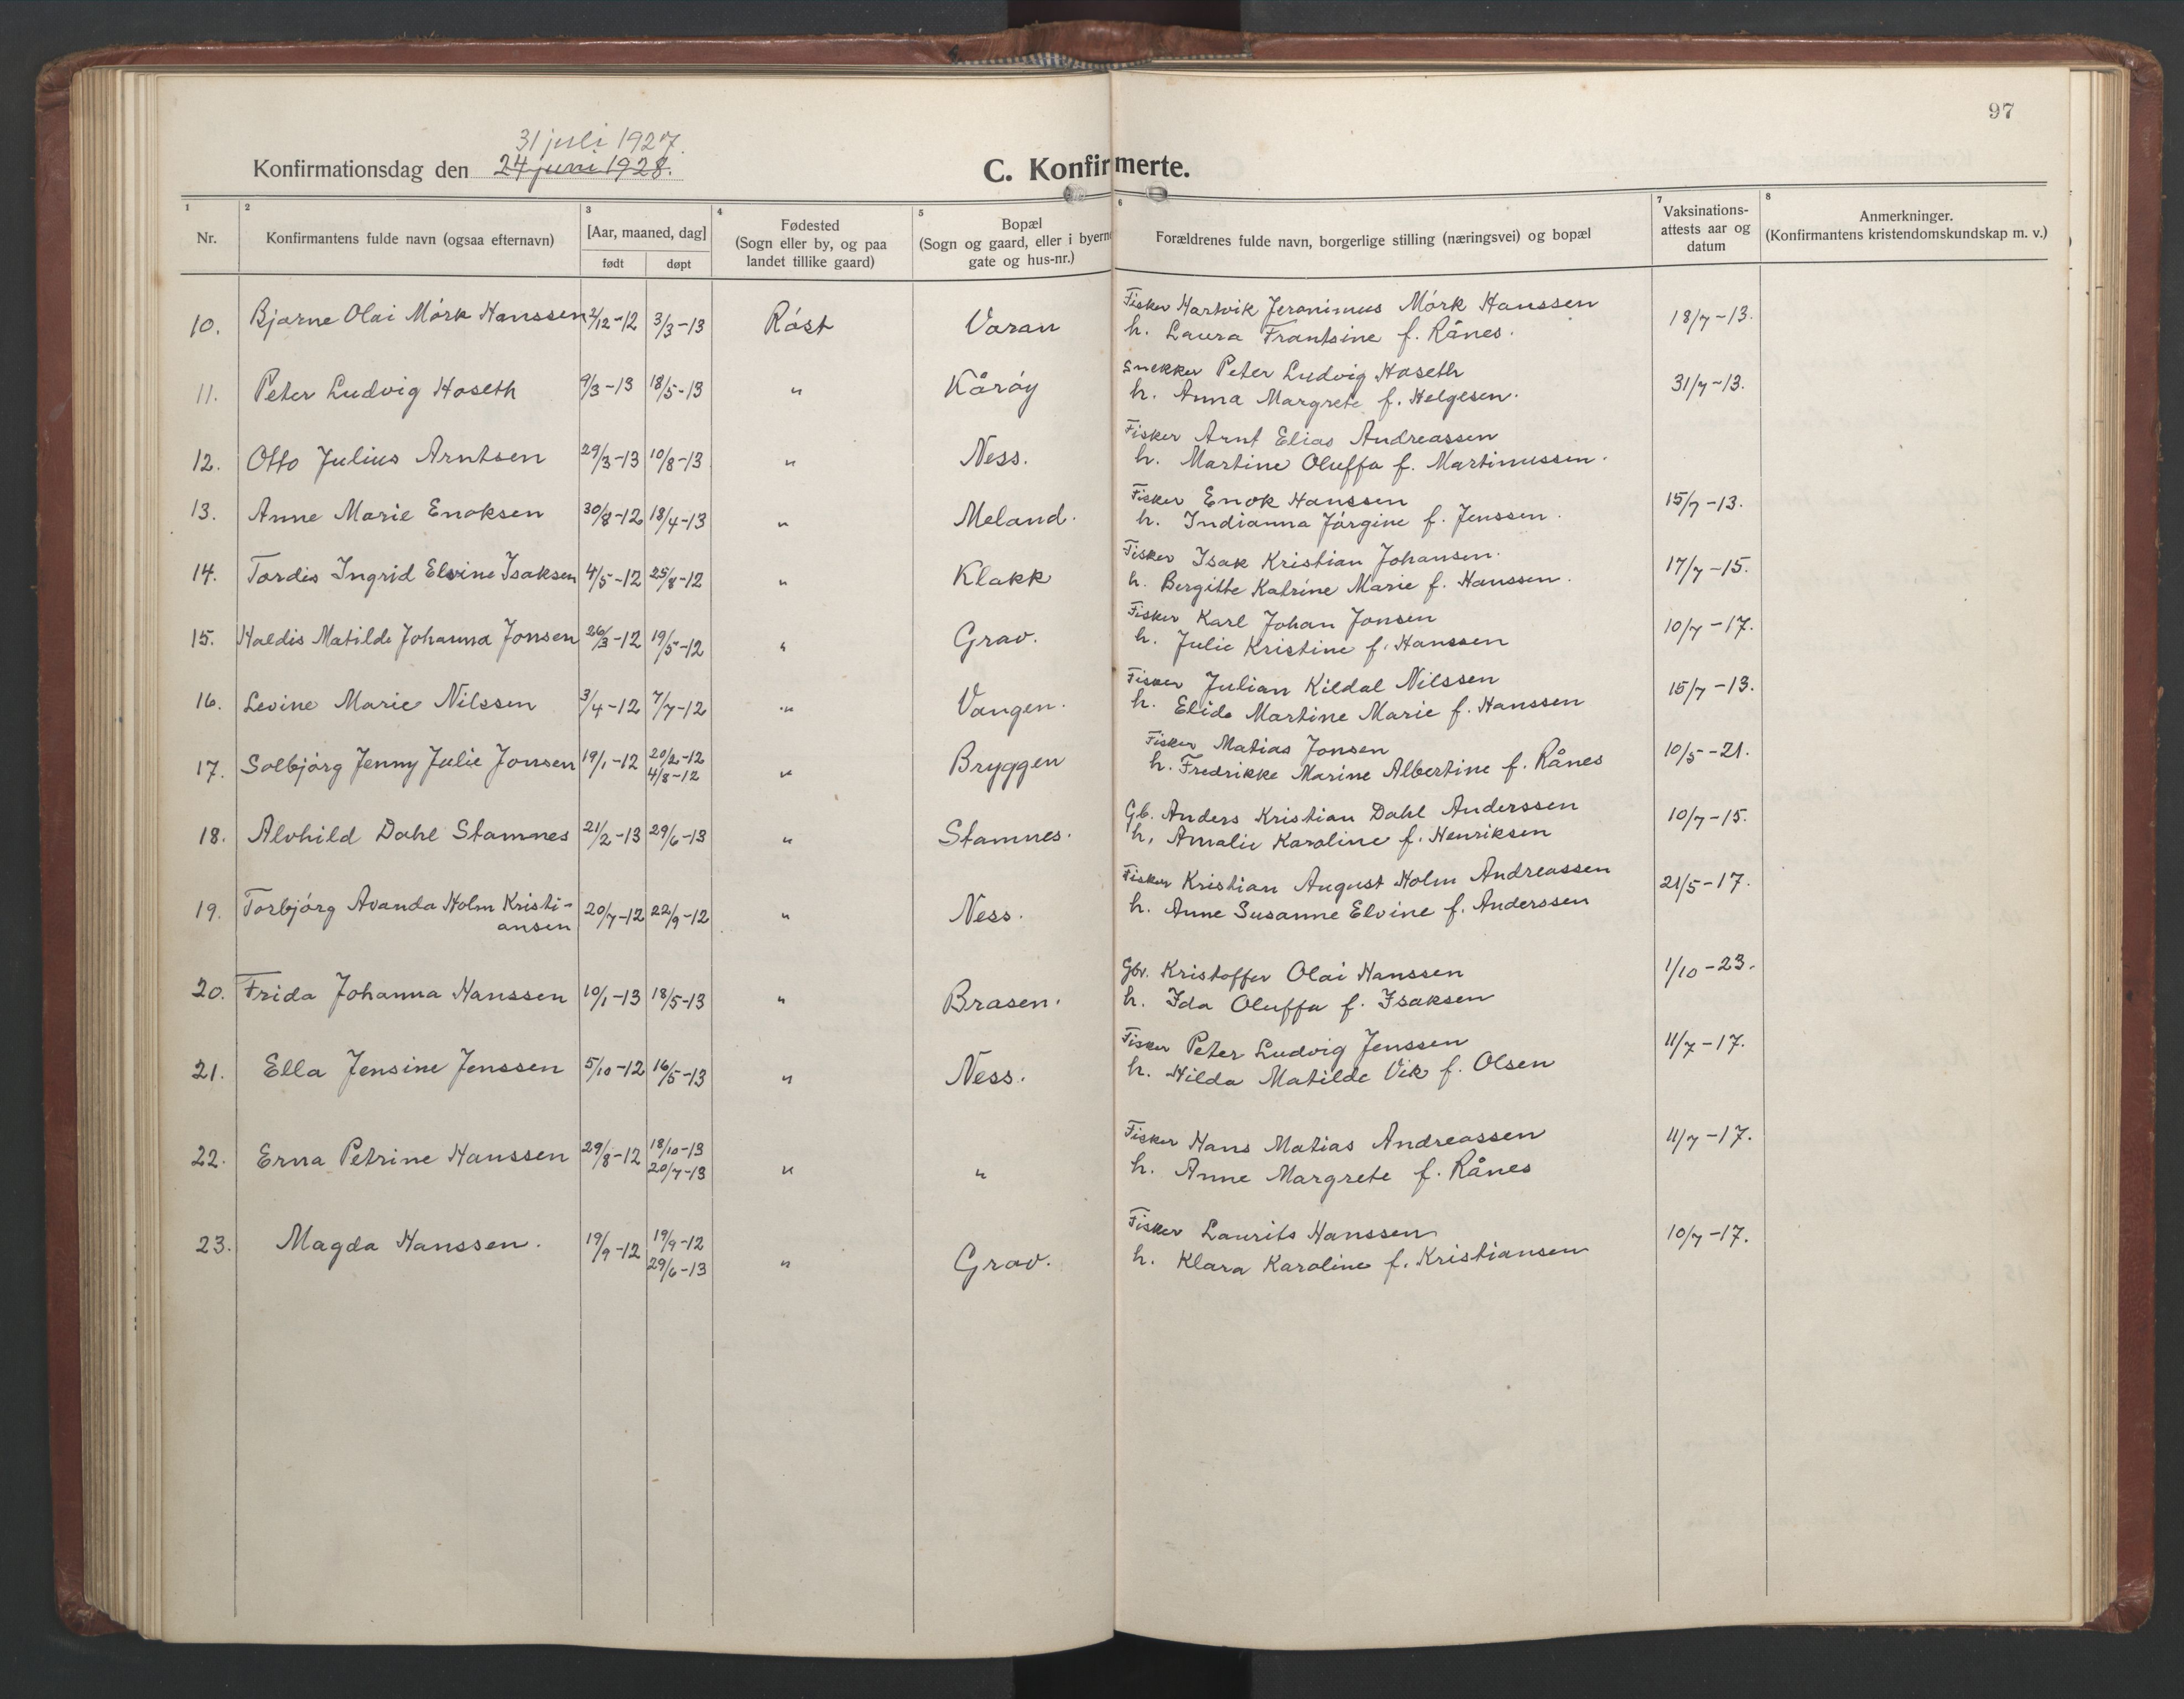 97
31 juli 1927.
Konfirmationsdag den 24 juni 1928.
C. Konfirmerte.
1 2 3 4 5 6 7 8
Nr.
Konfirmantens fulde navn (ogsaa efternavn)
[Aar, maaned, dag]
født døpt
Fødested
(Sogn eller by, og paa
landet tillike gaard)
Bopæl
(Sogn og gaard, eller i byerne
gate og hus-nr.)
Forældrenes fulde navn, borgerlige stilling (næringsvei) og bopæl
Vaksinations-
attests aar og
datum
Anmerkninger.
(Konfirmantens kristendomskundskap m. v.)
10. Bjarne Olai Mórk Hanssen 2/12-12 3/3-13 Róst Varan Fisker Hartvik Jeronimus Mórk Hanssen 18/7-13.
h. Laura Frantsine f. Rånes.
11. Peter Ludvig Hoseth 9/3-13 18/5-13 " Kåróy Snekker Peter Ludvig Hoseth 31/7-13.
h. Anna Margrete f. Helgesen.
12. Otto Julius Arntsen 29/3-13 10/8-13 " Ness. Fisker Arnt Elias Andreassen
h. Martine Oluffa f. Martinussen.
13. Anne Marie Enoksen 30/8-12 18/4-13 " Meland. Fisker Enok Hanssen 15/7-13.
h. Indianna Jórgine f. Jenssen.
14. Tordis Ingrid Elvine Isaksen 4/5-12 25/8-12 " Klakk Fisker Isak Kristian Johansen. 17/7-15.
h. Bergitte Katrine Marie f. Hanssen.
15. Haldis Matilde Johanna Jonsen 26/3-12 19/5-12 " Grav. Fisker Karl Johan Jonsen 10/7-17.
h. Julie Kristine f. Hanssen
16. Levine Marie Nilssen 3/4-12 7/7-12 " Vangen. Fisker Julian Kildal Nilssen 15/7-13.
h. Elide Martine Marie f. Hanssen
17. Solbjórg Jenny Julie Jonsen 19/1-12 20/2-12 " Bryggen Fisker Matias Jonsen 10/5-21.
4/8-12 h. Fredrikke Marine Albertine f. Rånes
18. Alvhild Dahl Stamnes 21/2-13 29/6-13 " Stamnes. Gb. Anders Kristian Dahl Anderssen 10/7-15.
h. Amalie Karoline f. Henriksen
19. Torbjórg Avanda Holm Kristi- 20/7-12 22/9-12 " Ness. Fisker Kristian August Holm Andreassen 21/5-17.
ansen h. Anne Susanne Elvine f. Anderssen
20. Frida Johanna Hanssen 10/1-13 18/5-13 " Brasen. Gbr. Kristoffer Olai Hanssen 1/10-23.
h. Ida Oluffa f. Isaksen
21. Ella Jensine Jenssen 5/10-12 16/5-13 " Ness. Fisker Peter Ludvig Jenssen 11/7-17.
h. Hilda Matilde Vik f. Olsen
22. Erna Petrine Hanssen 29/8-12 18/10-13 " " Fisker Hans Matias Andreassen 11/7-17.
20/7-13 h. Anne Margrete f. Rånes
23. Magda Hanssen. 19/9-12 19/9-12 " Grav. Fisker Laurits Hanssen 10/7-17.
29/6-13 h. Klara Karoline f. Kristiansen